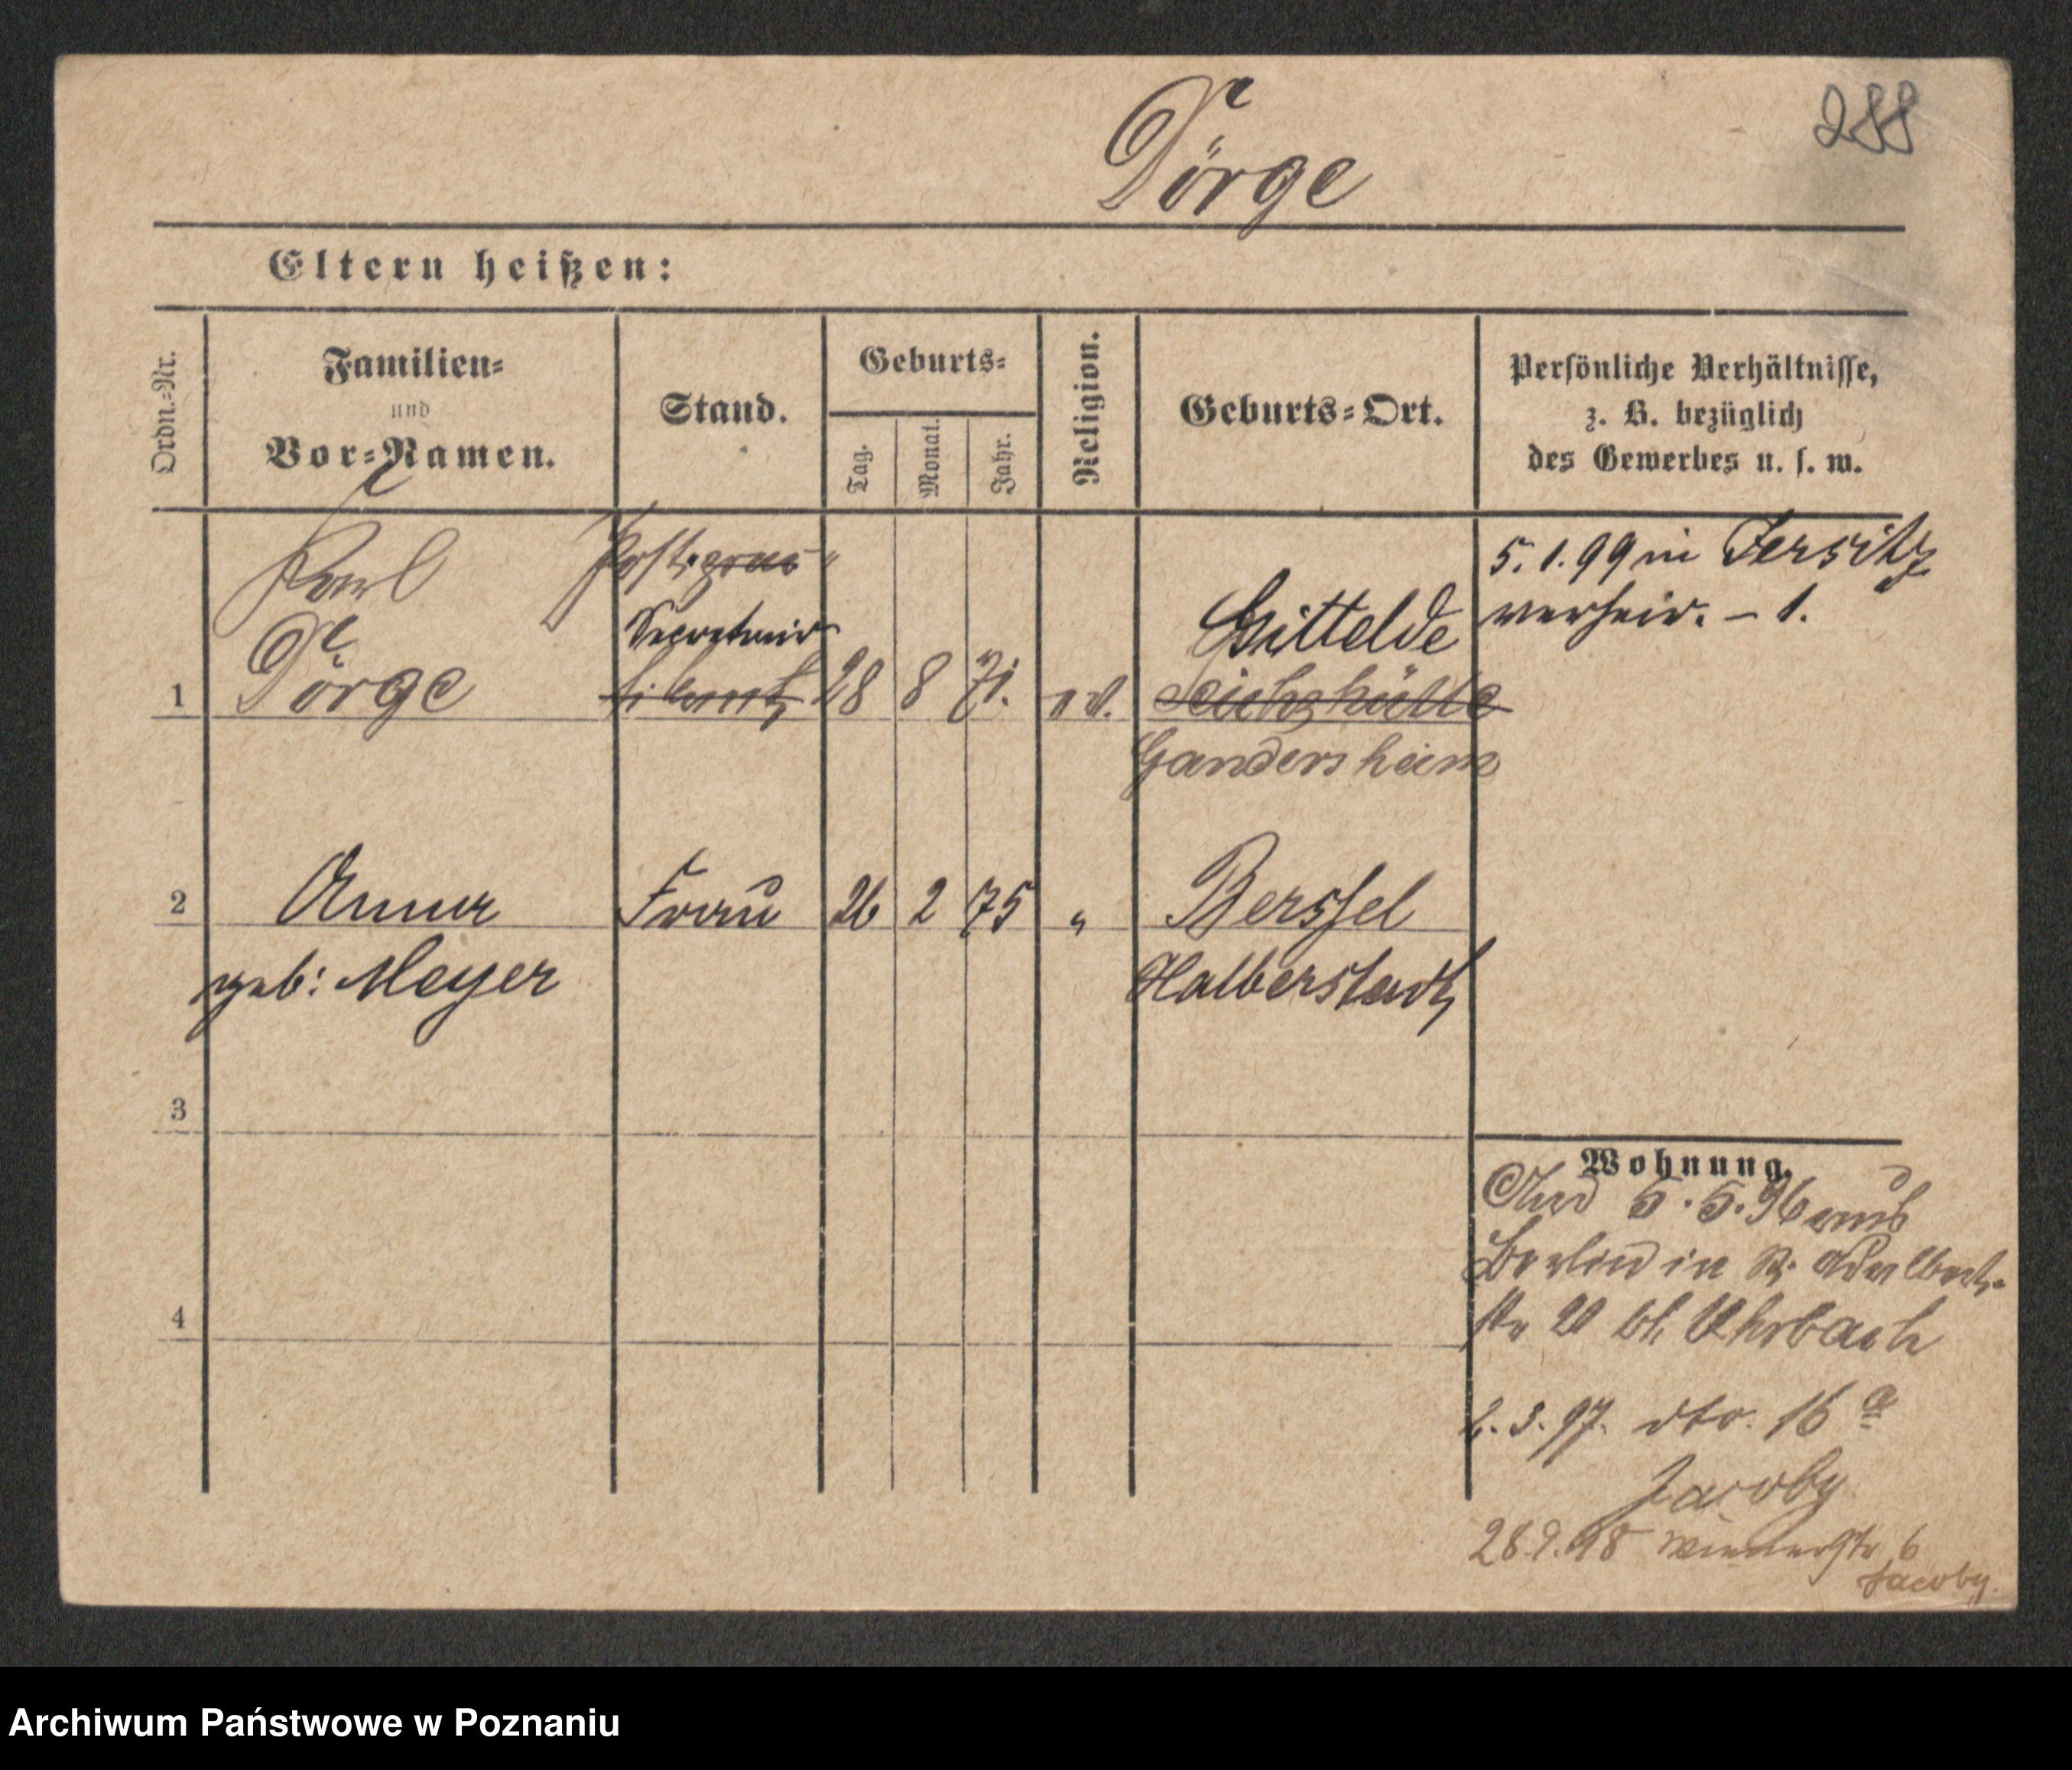 288
Dörge
Eltern heißen:
Ordn.-Nr.
Familien-
und
Vor-Namen.
Stand.
Geburts-
Tag.
Monat.
Jahr.
Religion.
Geburts-Ort.
Persönliche Verhältnisse,
z. B. bezüglich
des Gewerbes u. s. w.
1
Karl
Dörge
Secretair
28 8 71.
ev.
Gittelde
Gandersheim
5.1.99 in Jersitz
verheir. – 1.
2
Anna
geb: Meyer
Frau
26 2 75
"
Berssel
Halberstadt
3
4
Wohnung.
5.5.96 aus
Berlin in St. Adalbert-
str 20 bh Uhrbach
2.3.97. dto. 16 a
Jacoby
28.9.98 Wienerstr 6
Jacoby.
Archiwum Państwowe w Poznaniu